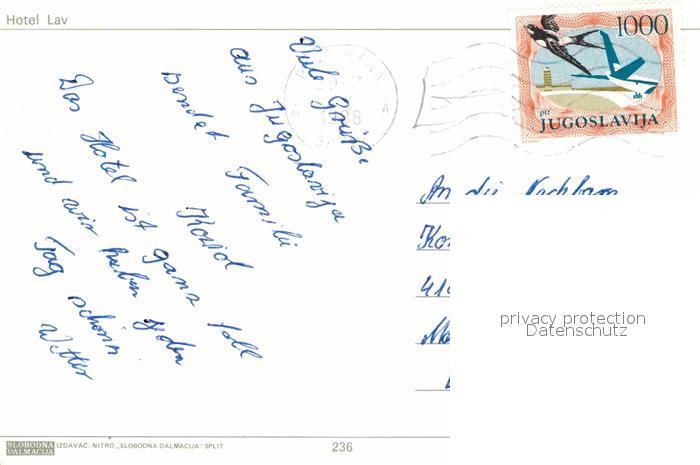 Hotel Lav
1000
ptt
JUGOSLAVIJA
Viele Grüße
aus Jugoslavija
sendet Familie
Koziol
Das Hotel ist ganz toll
und wir haben jeden
Tag schönes
Wetter
An die Nachbarn
41
privacy protection
Datenschutz
SLOBODNA
DALMACIJA
IZDAVAČ: NITRO „SLOBODNA DALMACIJA" SPLIT
236